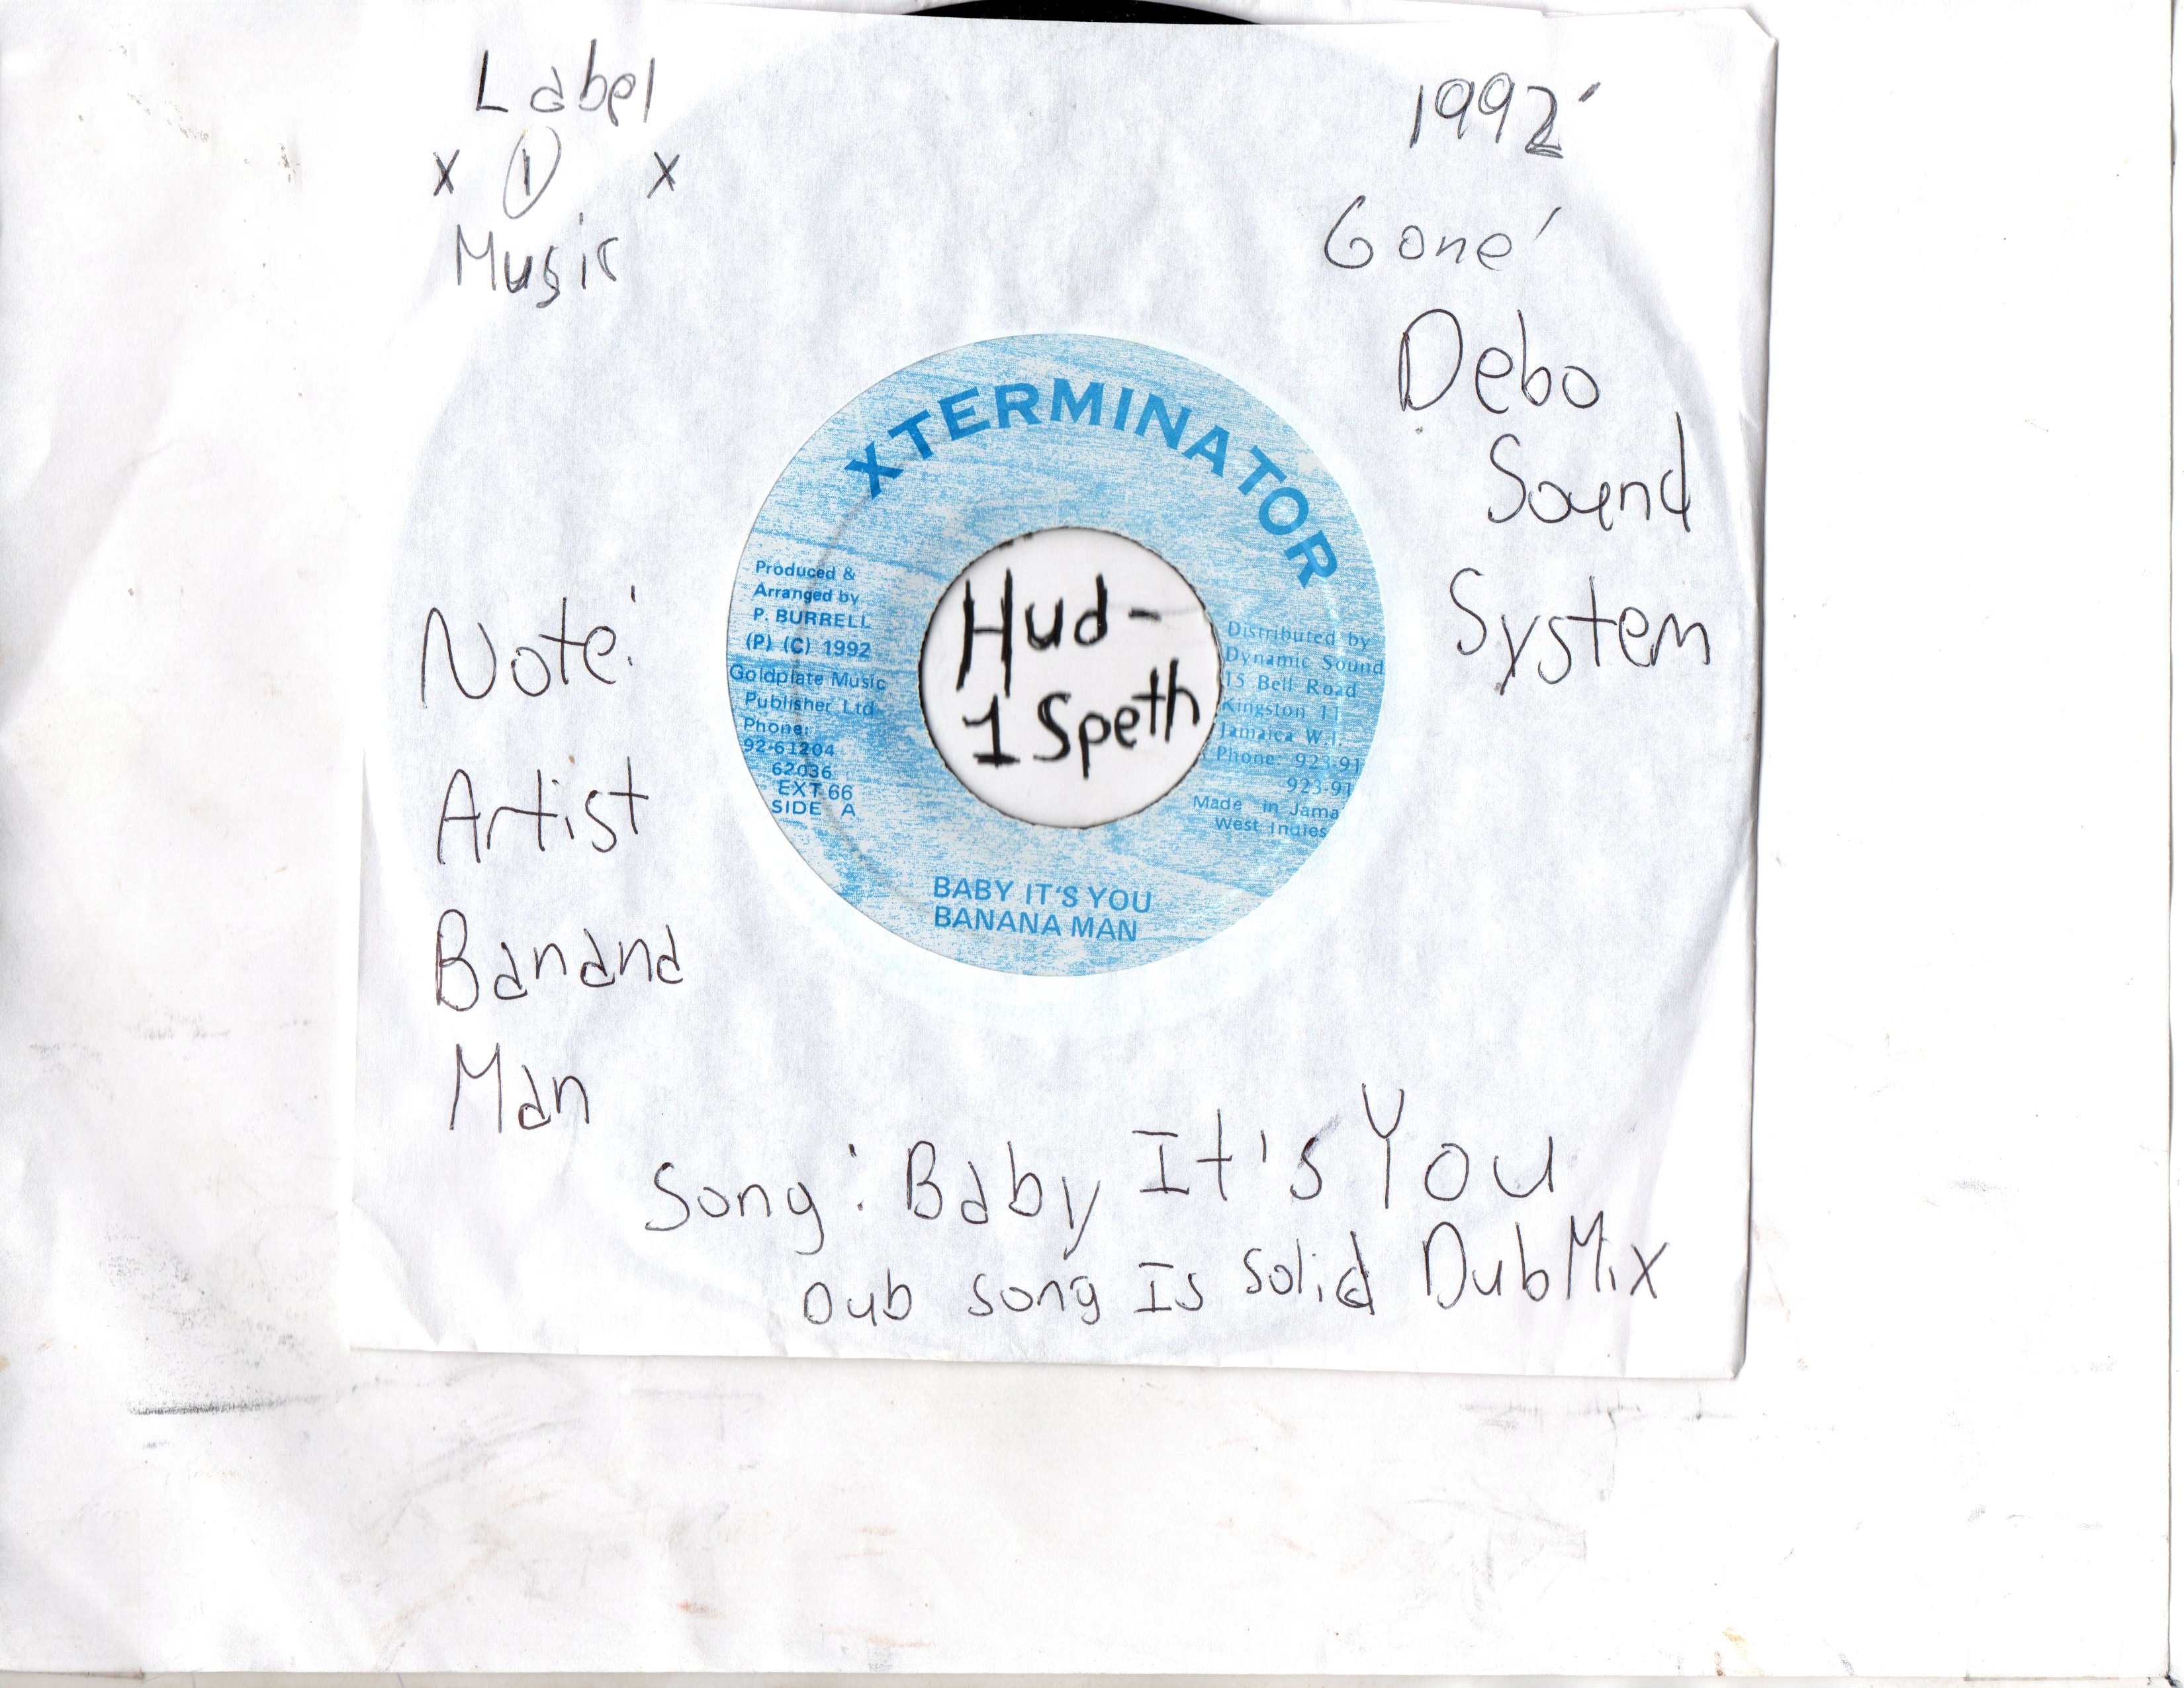 Label
x 1 x
Music
1992'
Gone'
Debo
Sound
System
Note:
Artist
Banana
Man
XTERMINATOR
Produced &
Arranged by
P. BURRELL
(P) (C) 1992
Goldplate Music
Publisher Ltd
Phone:
92-61204
62036
EXT 66
SIDE A
Hud-
1 Speth
Distributed by
Dynamic Sound
15 Bell Road
Kingston 11
Jamaica W.I.
Phone: 923-91
923-91
Made in Jama
West Indies
BABY IT'S YOU
BANANA MAN
Song: Baby It's You
Dub song Is Solid Dub Mix